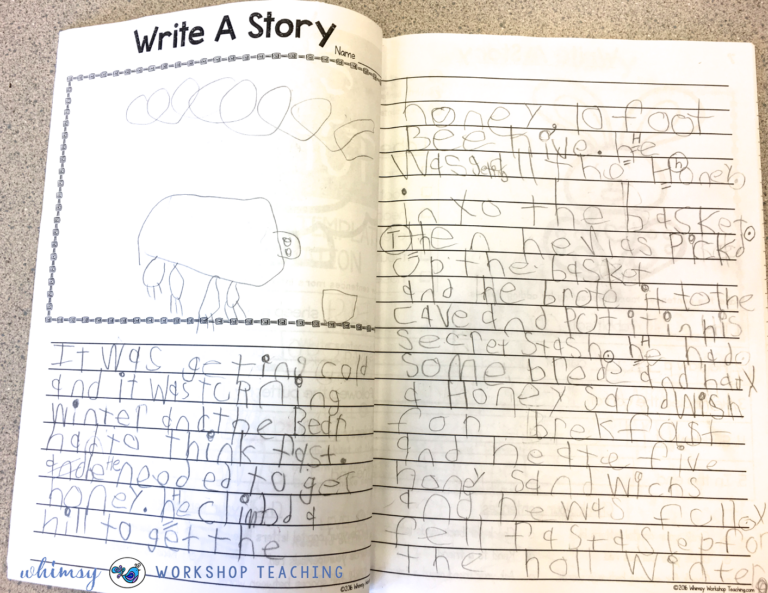 Write A Story
Name
It was geting cold
and it was turning
winter and the Bear
had to think fast.
and he needed to get
honey. he climbd a
hill to get the
honey. 10 foot
Bee hive. he
was the Honey
in to the basket.
Then he was pickd
up the basket
and he brote it to the
cave and put it in his
secret stash. he had
some brade and had
a Honey sandwish
for brekfast
and he ate five
honey sandwichs
and he was full
fell fast aslep for
the hall winter
whimsy WORKSHOP TEACHING
©2016 Whimsy Workshop Teaching.com